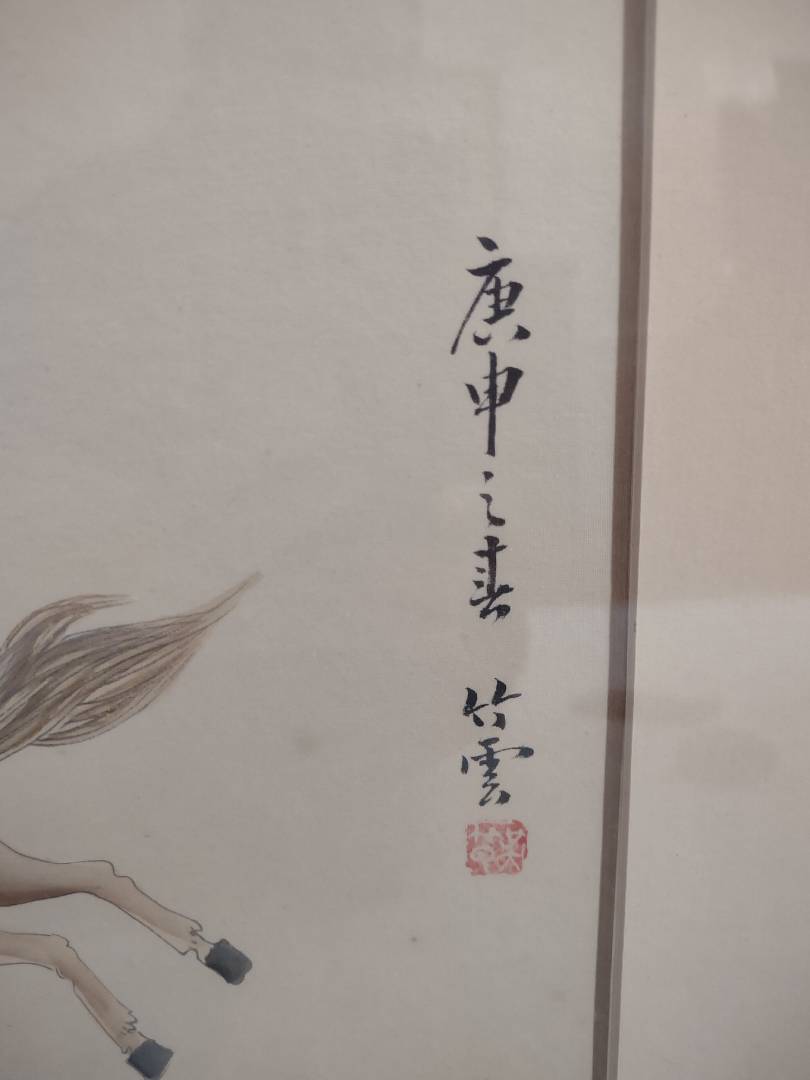 庚申之春 竹雲